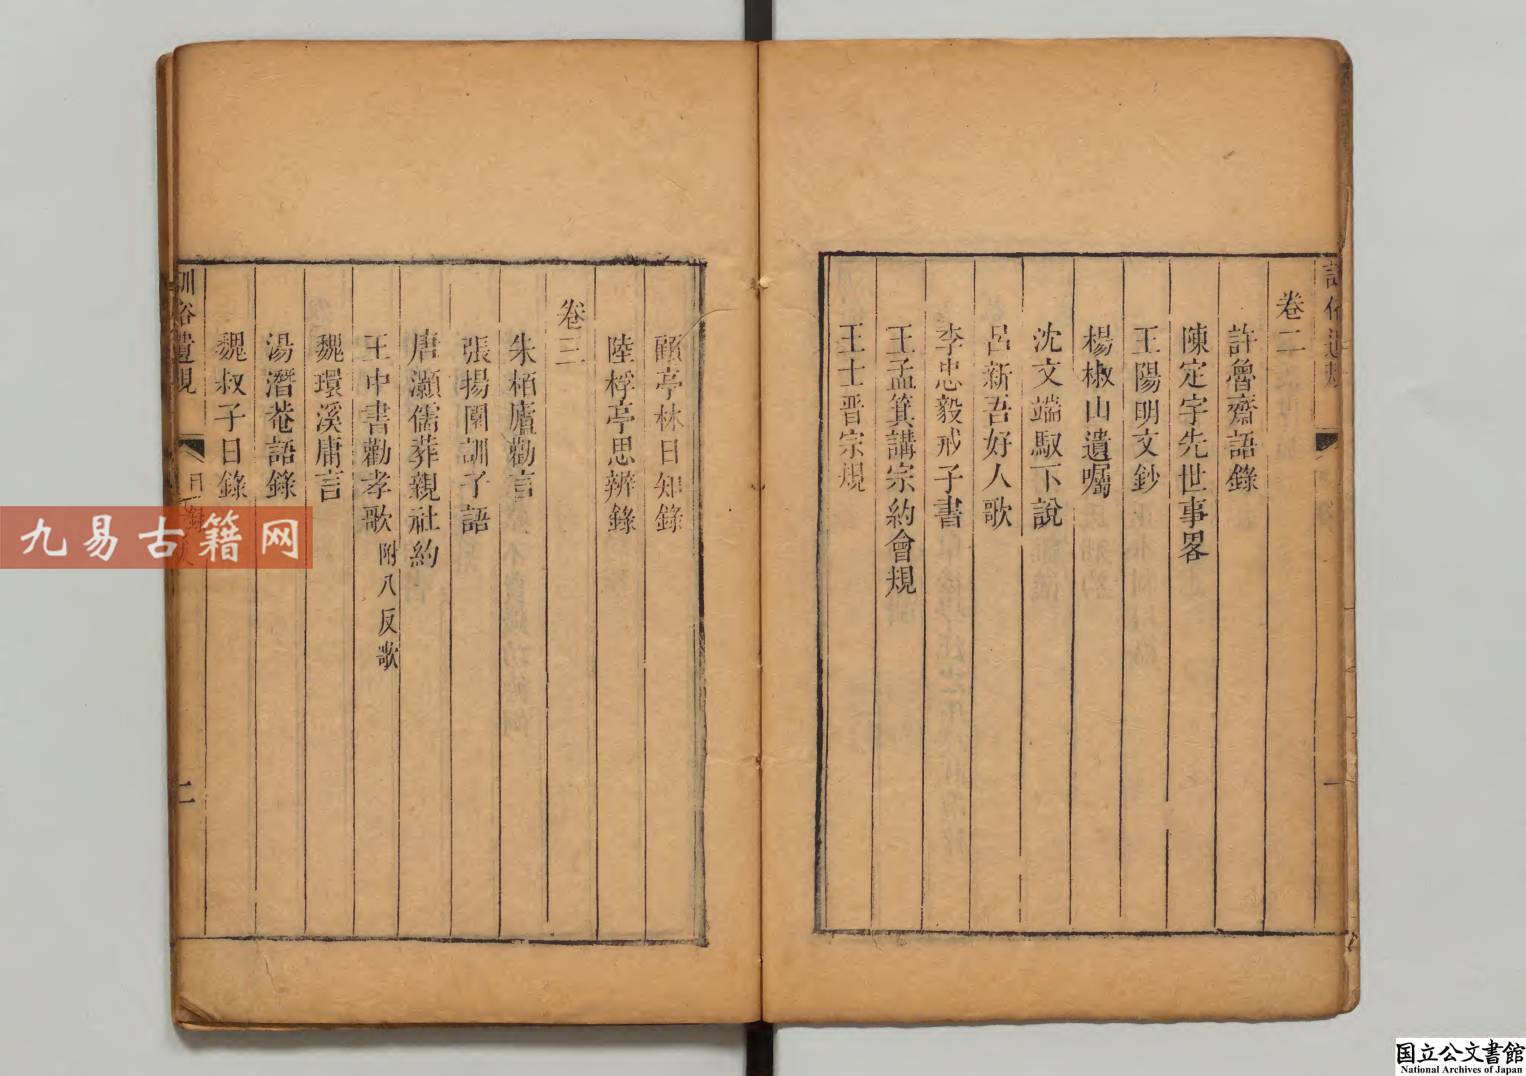 卷二
許魯齋語錄
陳定宇先世事畧
王陽明文鈔
楊椒山遺囑
沈文端馭下說
呂新吾好人歌
李忠毅戒子書
王孟箕講宗約會規
王士晋宗規
顧亭林日知錄
陸桴亭思辨錄
卷三
朱栢廬勸言
張揚園訓子語
唐灝儒葬親社約
王中書勸孝歌 附八反歌
魏環溪庸言
湯潛菴語錄
魏叔子日錄
訓俗遺規
目
二
九易古籍网
国立公文書館
National Archives of Japan